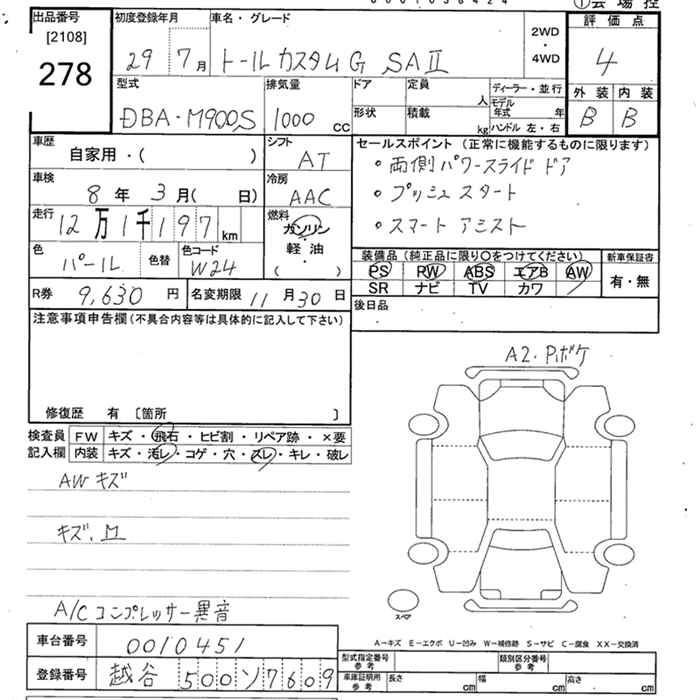 ①会場控
出品番号
[2108]
278
初度登録年月
29 年 7 月
車名・グレード
トールカスタムG SAⅡ
2WD
・
4WD
評価点
4
外装 内装
B B
型式
DBA-M900S
排気量
1000 cc
ドア
形状
定員 人
積載 kg
ディーラー・並行
モデル年式 年
ハンドル 左・右
車歴
自家用・( )
車検
8 年 3 月( 日)
走行
12万1千197 km
色
パール
色替
色コード
W24
シフト
AT
冷房
AAC
燃料
ガソリン
軽・油
( )
セールスポイント (正常に機能するものに限ります)
・両側パワースライドドア
・プッシュスタート
・スマートアシスト
装備品 (純正品に限り○をつけてください)
PS PW ABS エアB AW
SR ナビ TV カワ
新車保証書
有・無
R券 9,630 円
名変期限 11月30日
後日品
注意事項申告欄(不具合内容等は具体的に記入して下さい)
修復歴 有 [箇所 ]
検査員記入欄
FW キズ・飛石・ヒビ割・リペア跡・×要
内装 キズ・汚レ・コゲ・穴・スレ・キレ・破レ
AWキズ
キズ.M
A/Cコンプレッサー異音
A2・Pボケ
スペア
A-キズ E-エクボ U-凹み W-補修跡 S-サビ C-腐食 XX-交換済
車台番号 0010451
登録番号 越谷 500 ソ 7609
型式指定番号 参考
類別区分番号 参考
車庫証明用 参考
長さ cm 幅 cm 高さ cm